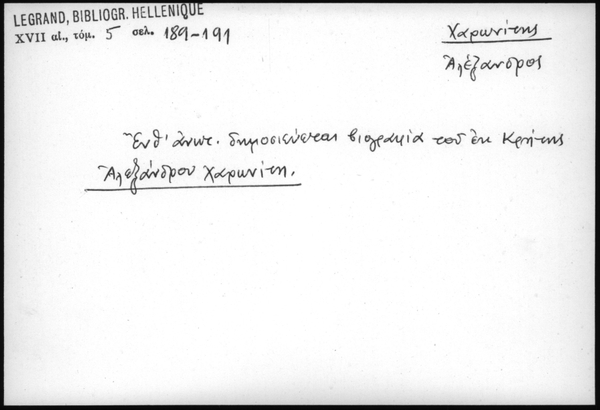 LEGRAND, BIBLIOGR. HELLENIQUE
XVII αἰ., τόμ. 5 σελ. 189-191
Χαρωνίτης
Ἀλέξανδρος
Ἔνθ' ἀνωτ. δημοσιεύεται βιογραφία τοῦ ἐκ Κρήτης
Ἀλεξάνδρου Χαρωνίτη.